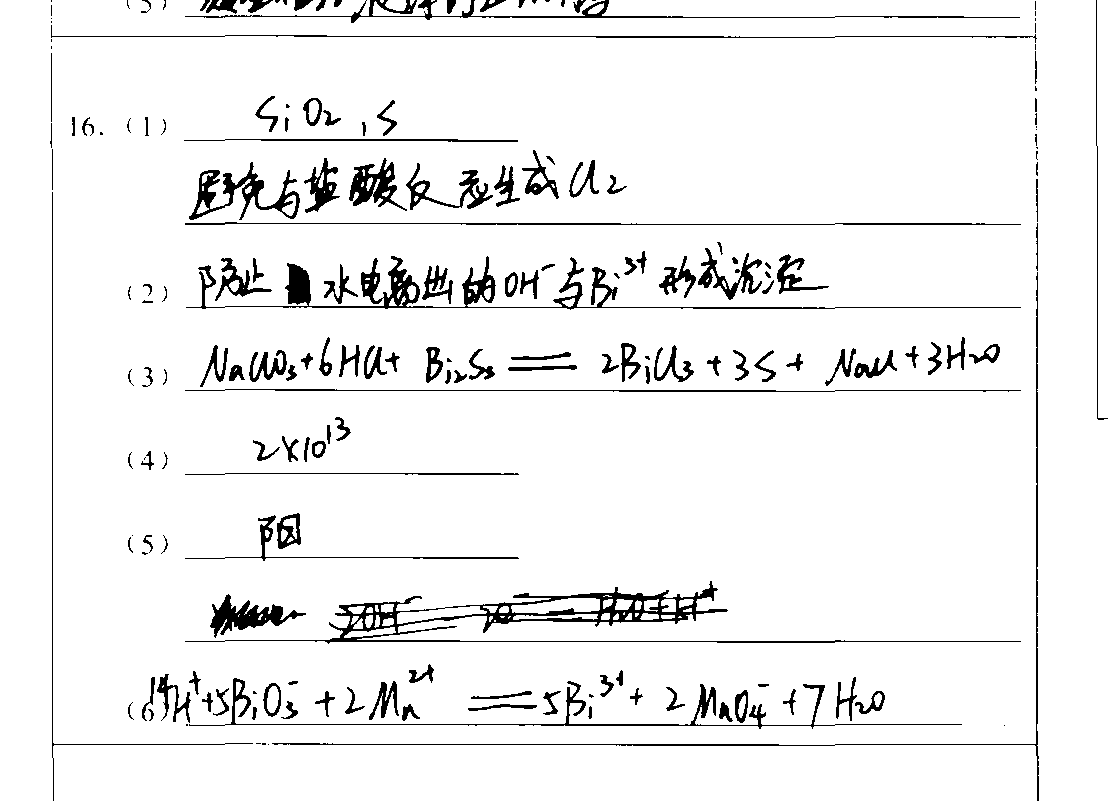 (5)
16. (1) SiO₂,S
避免与盐酸反应生成Cl₂
(2) 防止水电离出的OH⁻与Bi³⁺形成沉淀
(3) NaClO₃+6HCl+ Bi₂S₃ == 2BiCl₃+3S+ NaCl+3H₂O
(4) 2×10¹³
(5) 阳
(6) 14H⁺+5BiO₃⁻+2Mn²⁺ == 5Bi³⁺+ 2MnO₄⁻+7H₂O